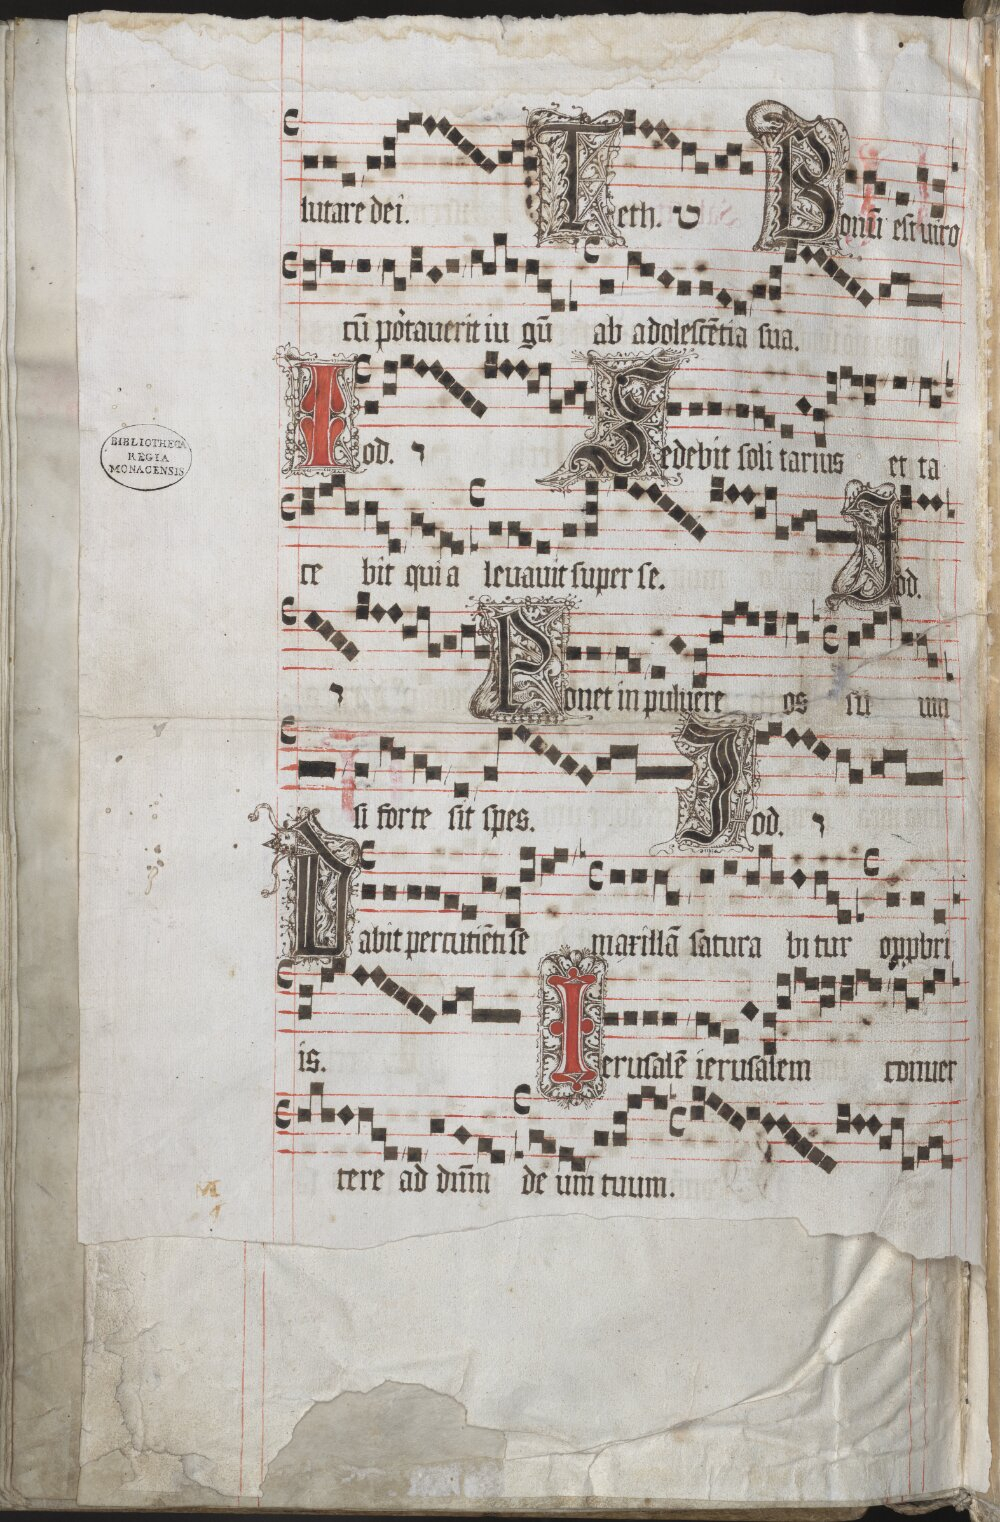 lutare dei. Teth. ט Bonū est viro
cū portauerit iu gū ab adolescētia sua.
Iod. י Sedebit soli tarius et ta
BIBLIOTHECA
REGIA
MONACENSIS
ce bit qui a leuauit super se. Iod.
י Ponet in puluere os su um
si forte sit spes. Iod. י
Dabit percutiēti se maxillā satura bitur opprobri
is. Ierusalē ierusalem conuer
tere ad dn̄m de um tuum.